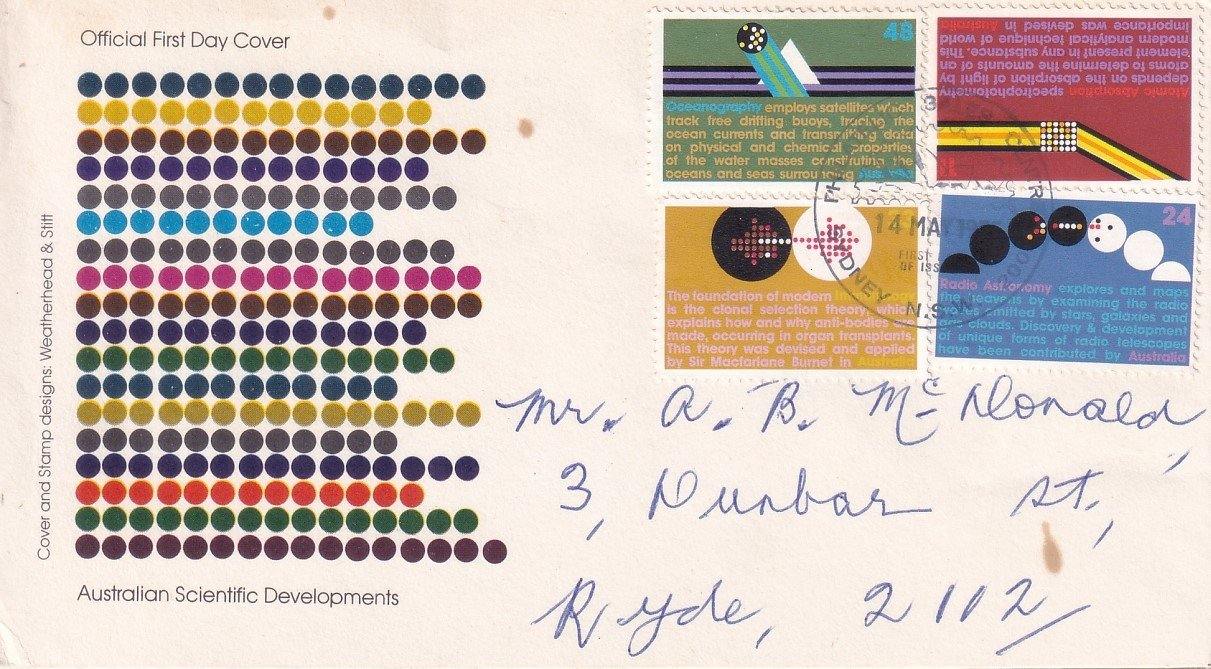 Official First Day Cover
Cover and Stamp designs: Weatherhead & Stitt
Australian Scientific Developments
48
Oceanography employs satellites which
track free drifting buoys, tracing the
ocean currents and transmitting data
on physical and chemical properties
of the water masses constituting the
oceans and seas surrounding Australia
11
Atomic Absorption spectrophotometry
depends on the absorption of light by
atoms to determine the amounts of an
element present in any substance. This
modern analytical technique of world
importance was devised in Australia
The foundation of modern Immunology
is the clonal selection theory, which
explains how and why anti-bodies are
made, occurring in organ transplants.
This theory was devised and applied
by Sir Macfarlane Burnet in Australia
24
Radio Astronomy explores and maps
the heavens by examining the radio
waves emitted by stars, galaxies and
gas clouds. Discovery & development
of unique forms of radio telescopes
have been contributed by Australia
14 MAY
FIRST
OF ISS
SYDNEY N.S.W. 2001
Mr. A. B. McDonald,
3, Dunbar St.,
Ryde, 2112